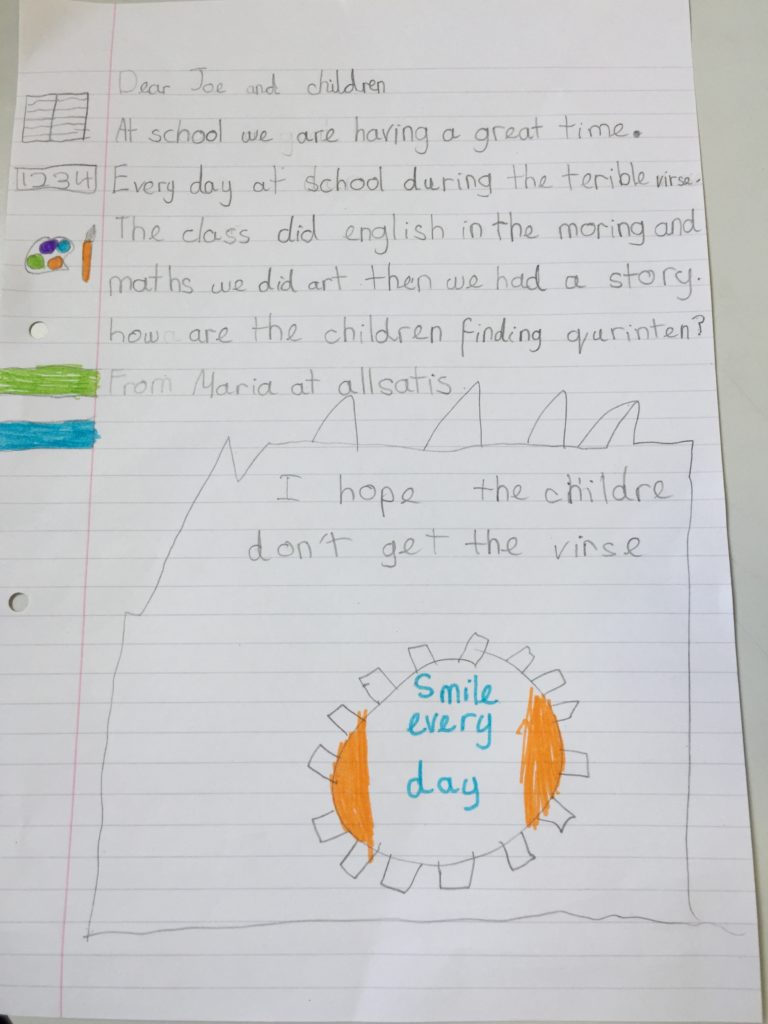 Dear Joe and children
At school we are having a great time.
1234
Every day at school during the terible virse.
The class did english in the moring and
maths we did art then we had a story.
how are the children finding qurinten?
From Maria at allsatis.
I hope the childre
don't get the virse
Smile
every
day